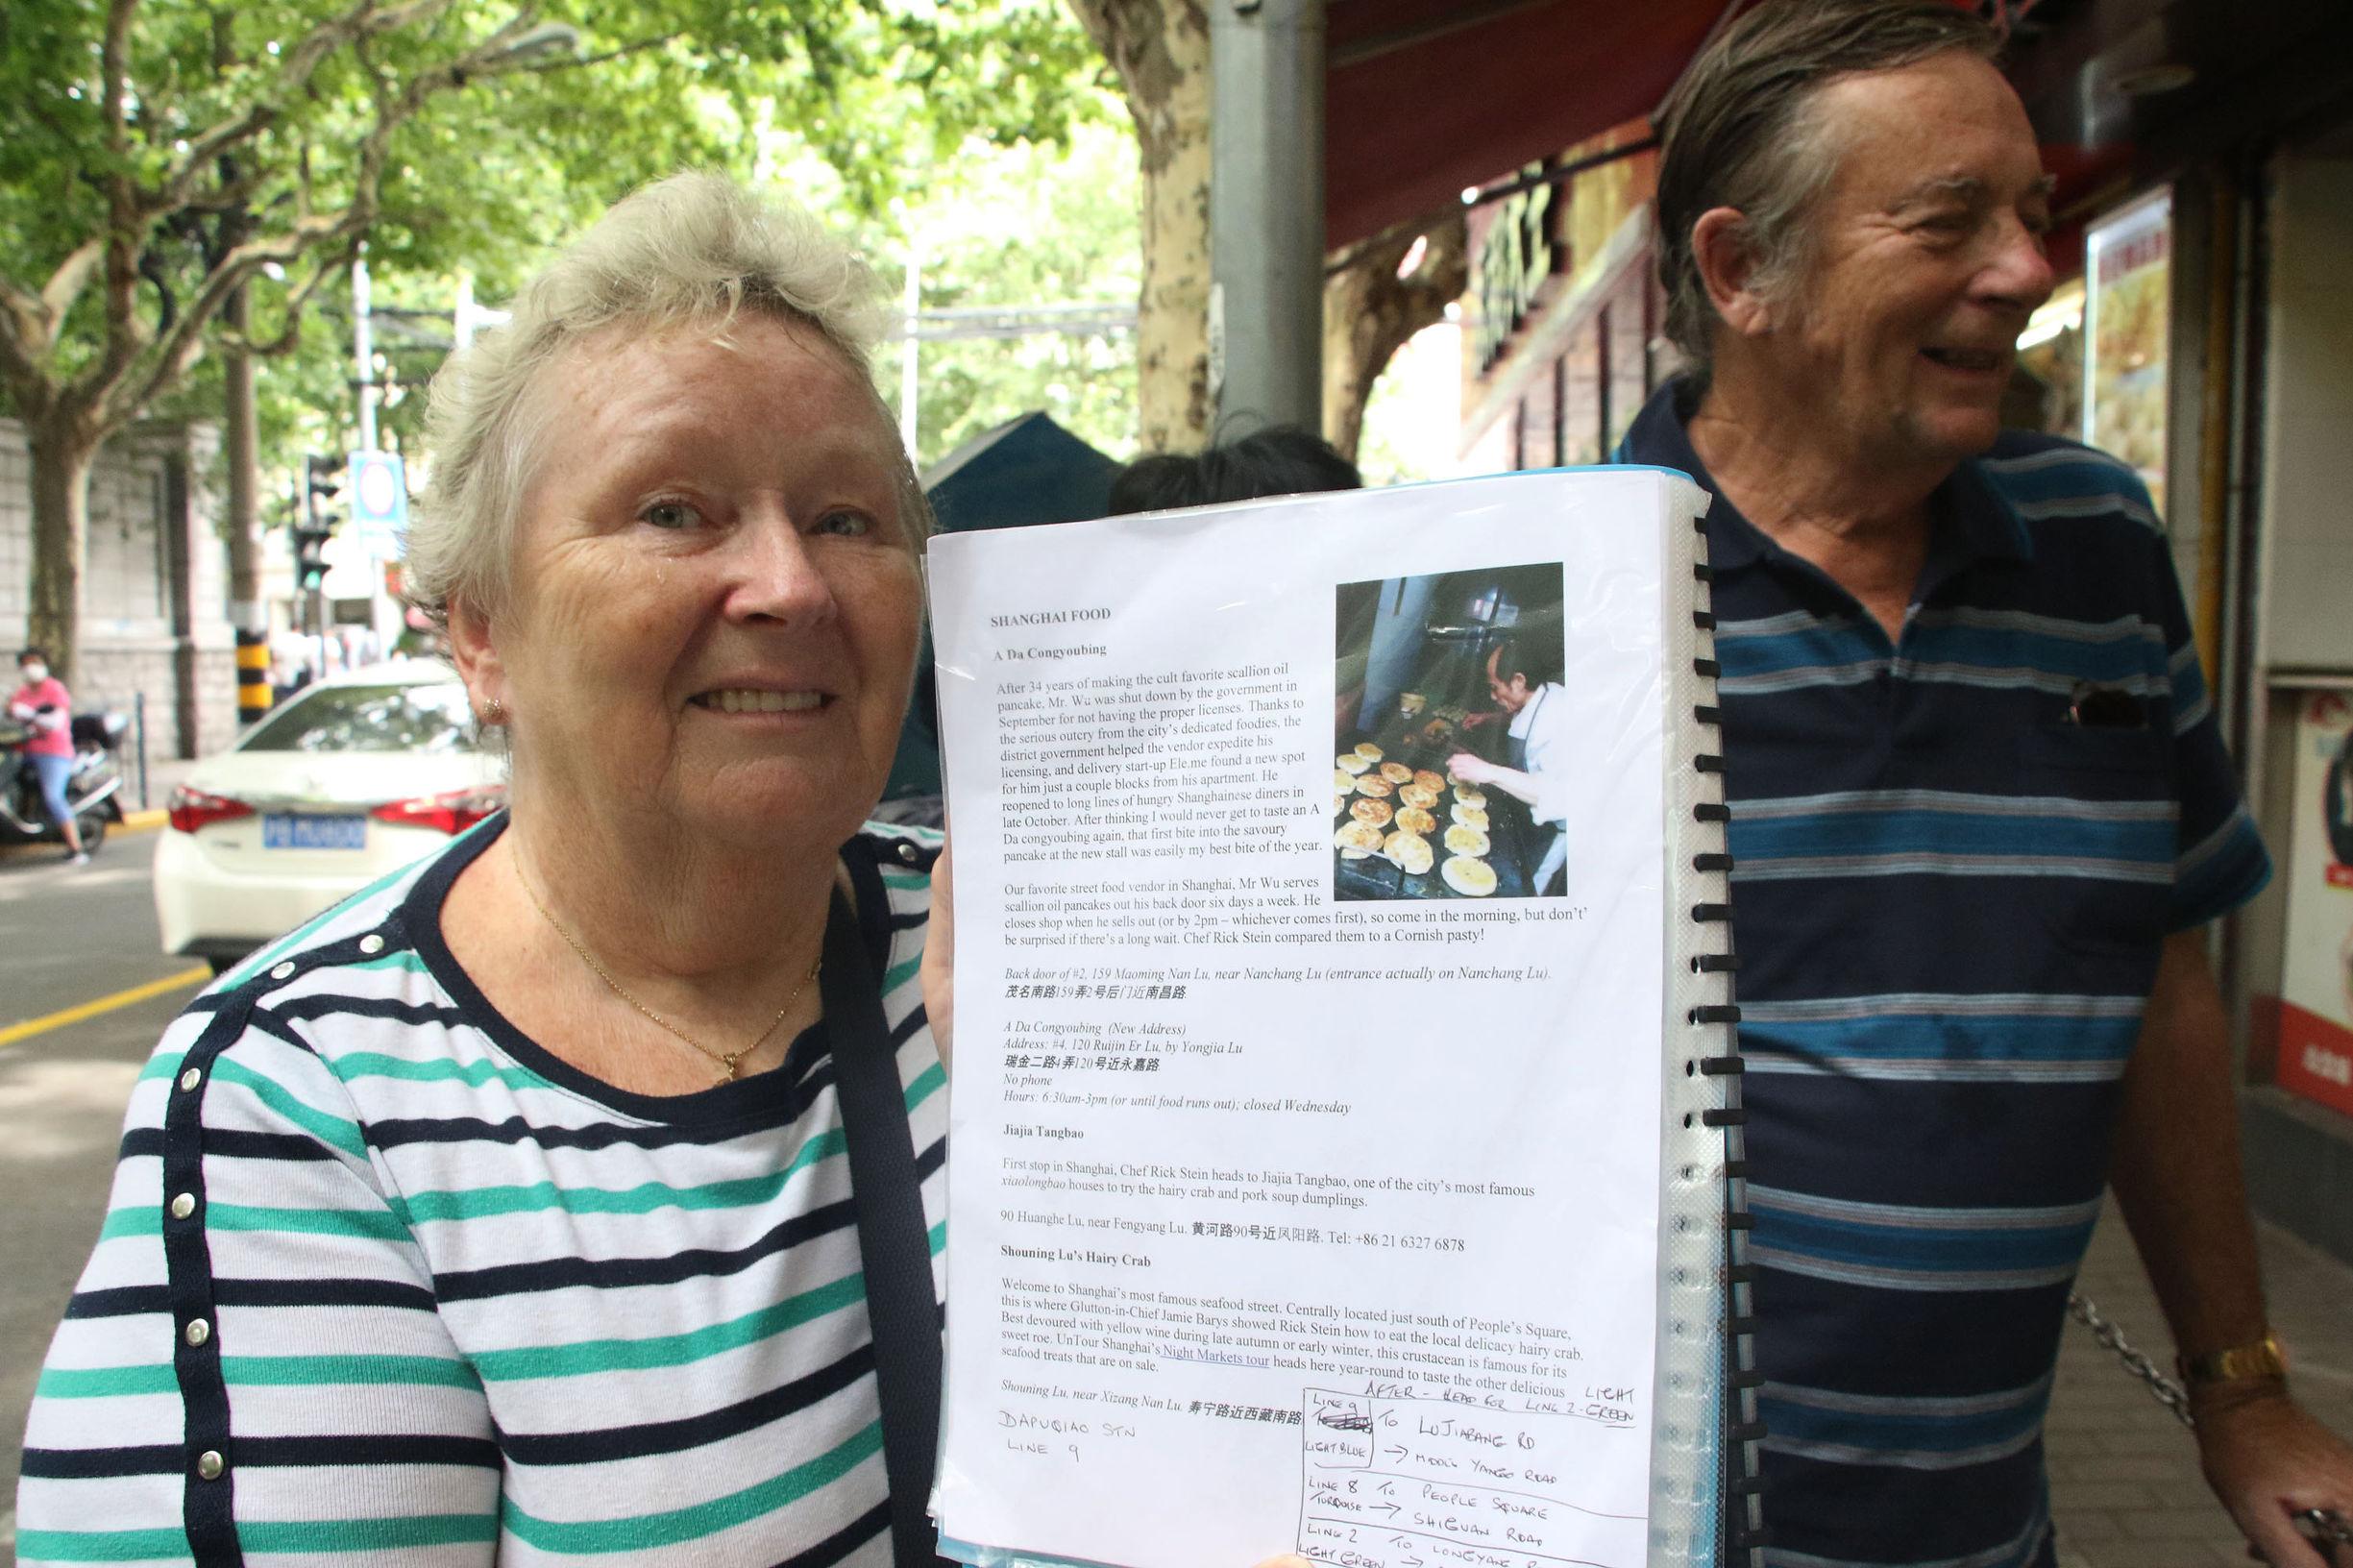 SHANGHAI FOOD
A Da Congyoubing
After 34 years of making the cult favorite scallion oil
pancake, Mr. Wu was shut down by the government in
September for not having the proper licenses. Thanks to
the serious outcry from the city's dedicated foodies, the
district government helped the vendor expedite his
licensing, and delivery start-up Ele.me found a new spot
for him just a couple blocks from his apartment. He
reopened to long lines of hungry Shanghainese diners in
late October. After thinking I would never get to taste an A
Da congyoubing again, that first bite into the savoury
pancake at the new stall was easily my best bite of the year.
Our favorite street food vendor in Shanghai, Mr Wu serves
scallion oil pancakes out his back door six days a week. He
closes shop when he sells out (or by 2pm – whichever comes first), so come in the morning, but don't'
be surprised if there's a long wait. Chef Rick Stein compared them to a Cornish pasty!
Back door of #2, 159 Maoming Nan Lu, near Nanchang Lu (entrance actually on Nanchang Lu).
茂名南路159弄2号后门近南昌路.
A Da Congyoubing (New Address)
Address: #4, 120 Ruijin Er Lu, by Yongjia Lu
瑞金二路4弄120号近永嘉路
No phone
Hours: 6:30am-3pm (or until food runs out); closed Wednesday
Jiajia Tangbao
First stop in Shanghai, Chef Rick Stein heads to Jiajia Tangbao, one of the city's most famous
xiaolongbao houses to try the hairy crab and pork soup dumplings.
90 Huanghe Lu, near Fengyang Lu. 黄河路90号近凤阳路. Tel: +86 21 6327 6878
Shouning Lu's Hairy Crab
Welcome to Shanghai's most famous seafood street. Centrally located just south of People's Square,
this is where Glutton-in-Chief Jamie Barys showed Rick Stein how to eat the local delicacy hairy crab.
Best devoured with yellow wine during late autumn or early winter, this crustacean is famous for its
sweet roe. UnTour Shanghai's Night Markets tour heads here year-round to taste the other delicious
seafood treats that are on sale.
Shouning Lu, near Xizang Nan Lu. 寿宁路近西藏南路
DAPUQIAO STN
LINE 9
AFTER - HEAD FOR LINE 2 - LIGHT GREEN
LINE 9 TO LUJIABANG RD
LIGHT BLUE → MIDDLE YANGO ROAD
LINE 8 TO PEOPLE SQUARE
TURQUOISE → SHIGUAN ROAD
LINE 2 TO LONGYANG
LIGHT GREEN →